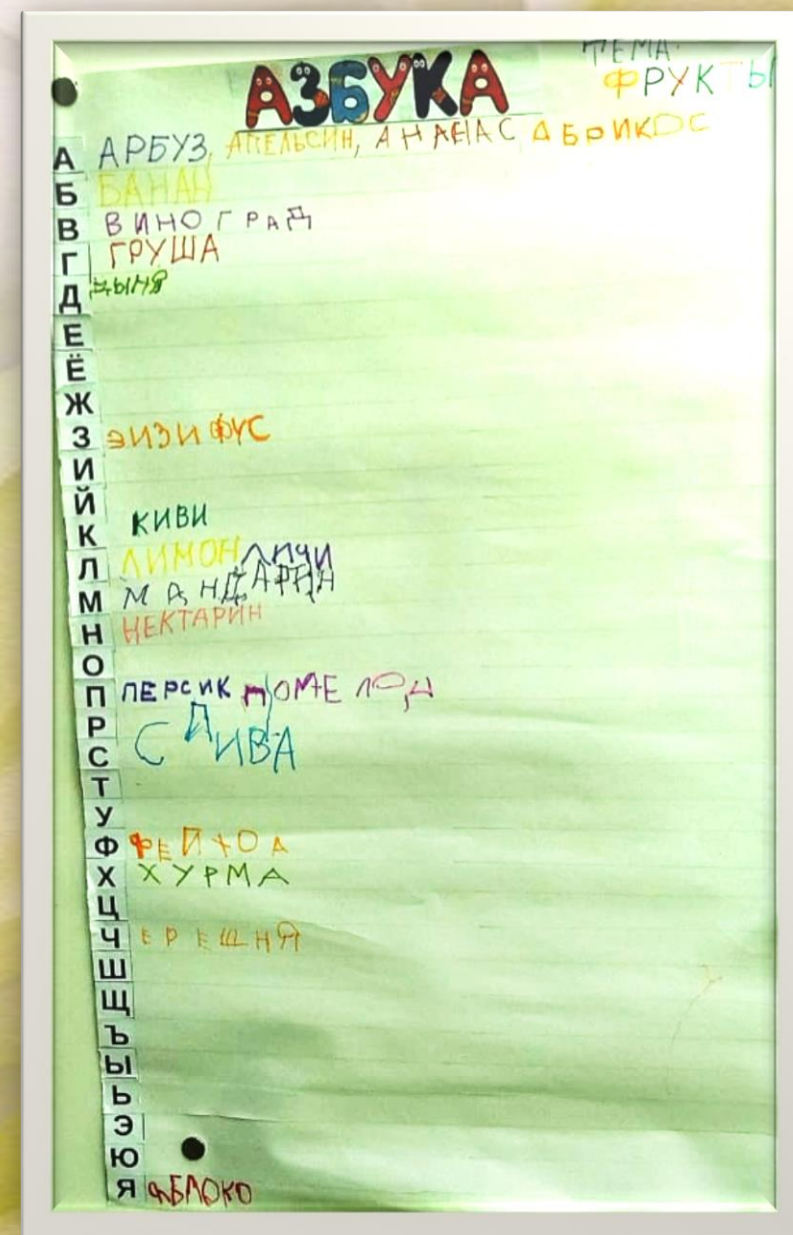 ТЕМА:
АЗБУКА ФРУКТЫ
А АРБУЗ, АПЕЛЬСИН, АНАНАС АБРИКОС
Б БАНАН
В ВИНОГРАД
Г ГРУША
Д ДЫНЯ
Е
Ё
Ж
З ЗИЗИФУС
И
Й
К КИВИ
Л ЛИМОН ЛИЧИ
М МАНДАРИН
Н НЕКТАРИН
О
П ПЕРСИК ПОМЕЛО
Р
С СЛИВА
Т
У
Ф ФЕЙХОА
Х ХУРМА
Ц
Ч ЕРЕШНЯ
Ш
Щ
Ъ
Ы
Ь
Э
Ю
Я ЯБЛОКО